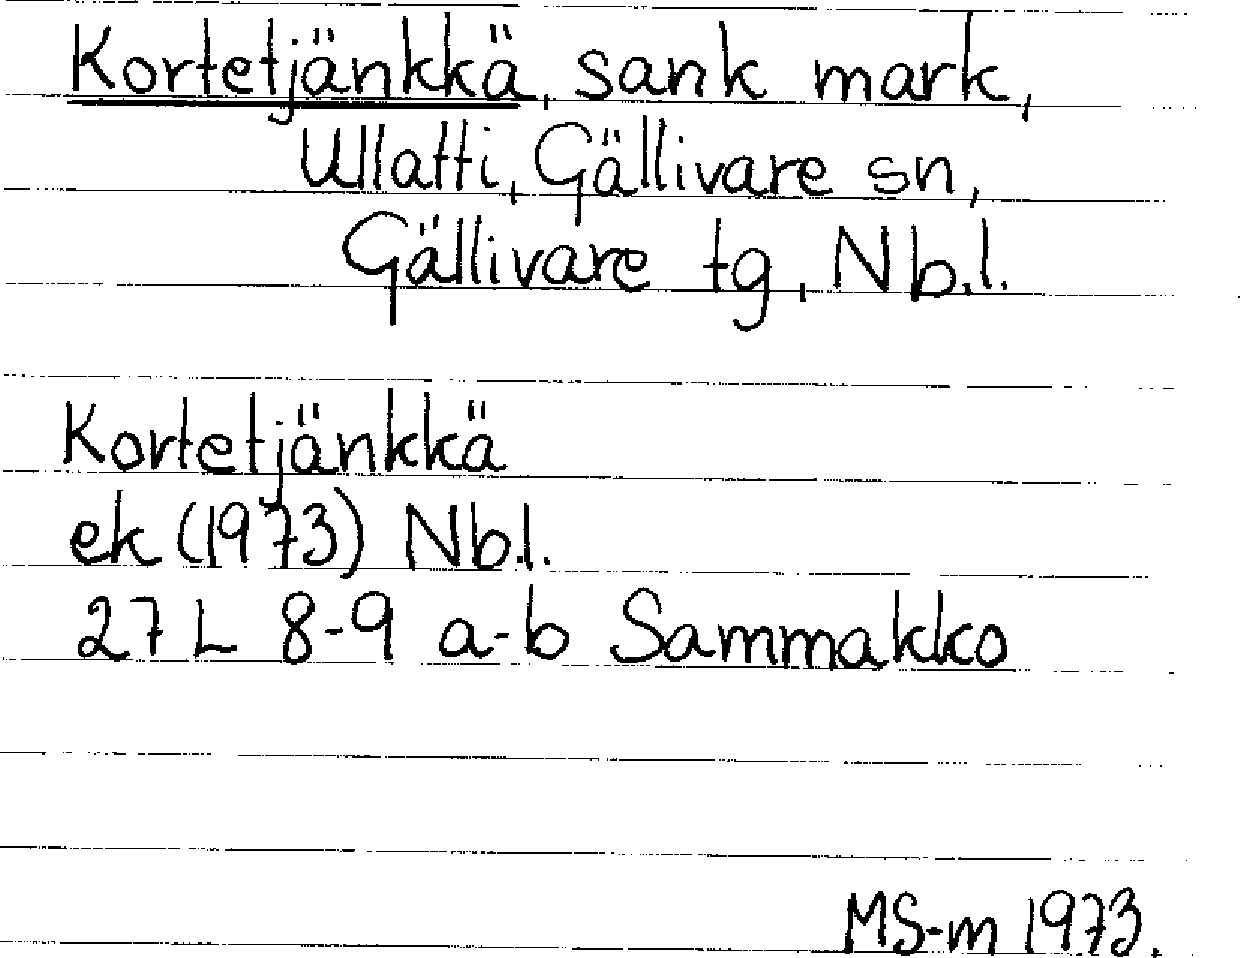 Kortetjänkkä, sank mark,
Ullatti, Gällivare sn,
Gällivare tg, Nb.l.
Kortetjänkkä
ek (1973) Nb.l.
27 L 8-9 a-b Sammakko
MS-m 1973.